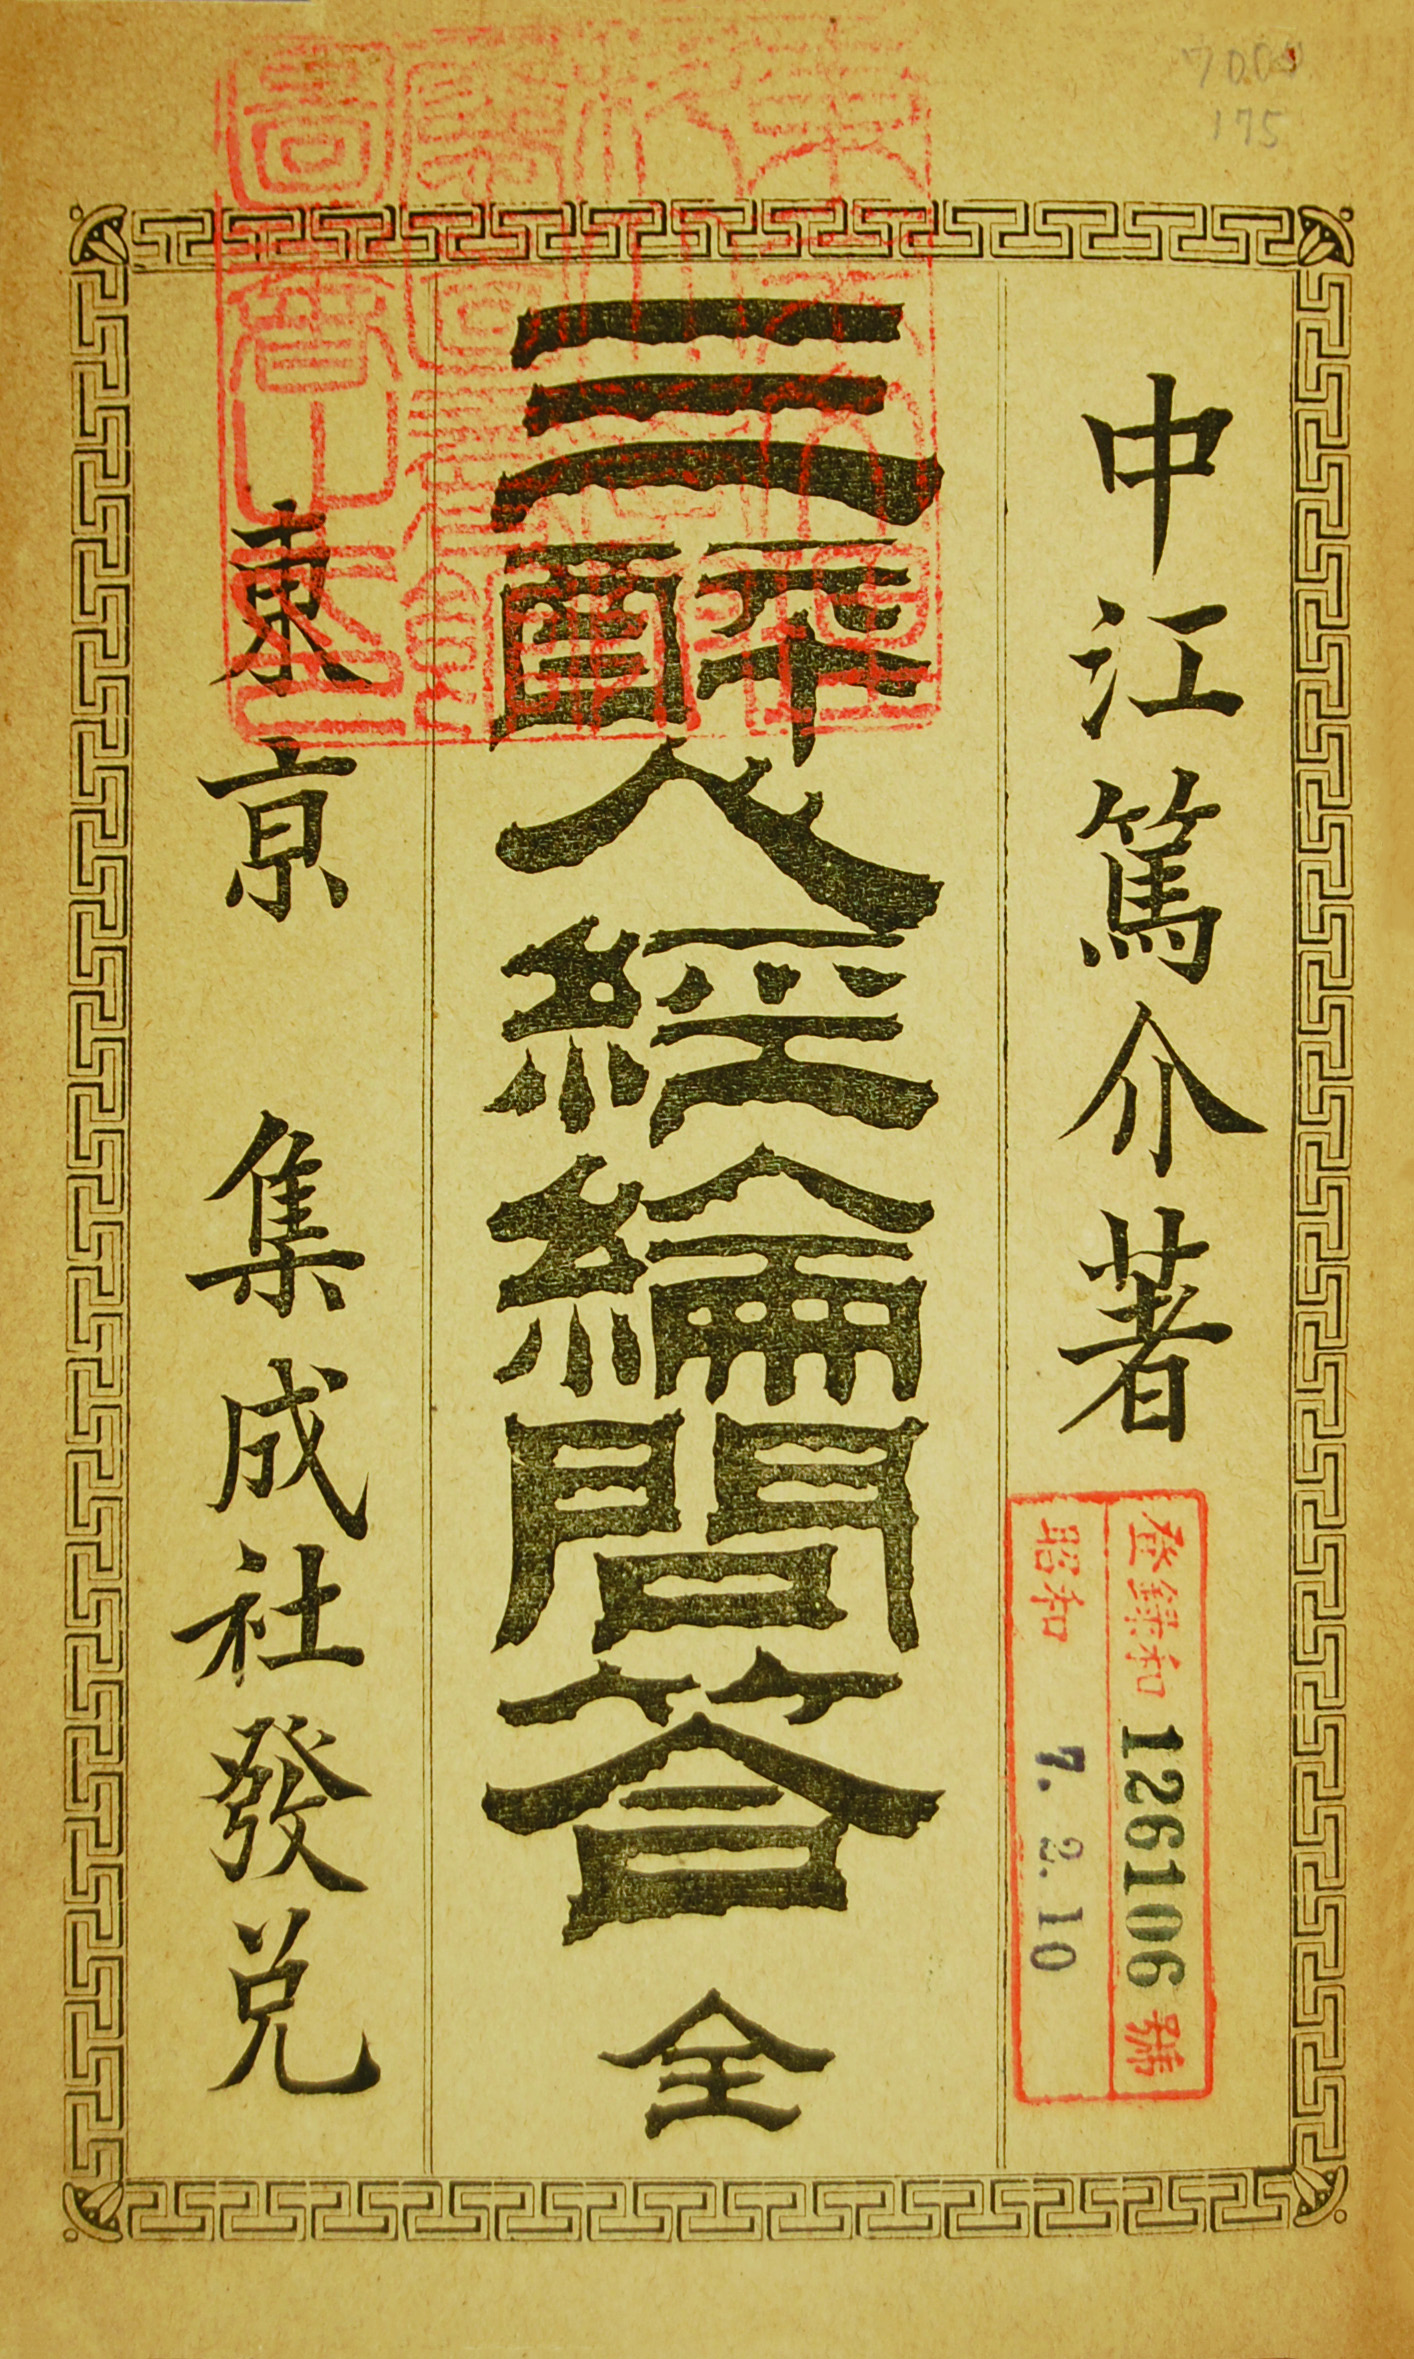 中江篤介著
三酔人經綸問答 全
東京 集成社發兌
登録和 126106 號
昭和 7. 2. 10
175